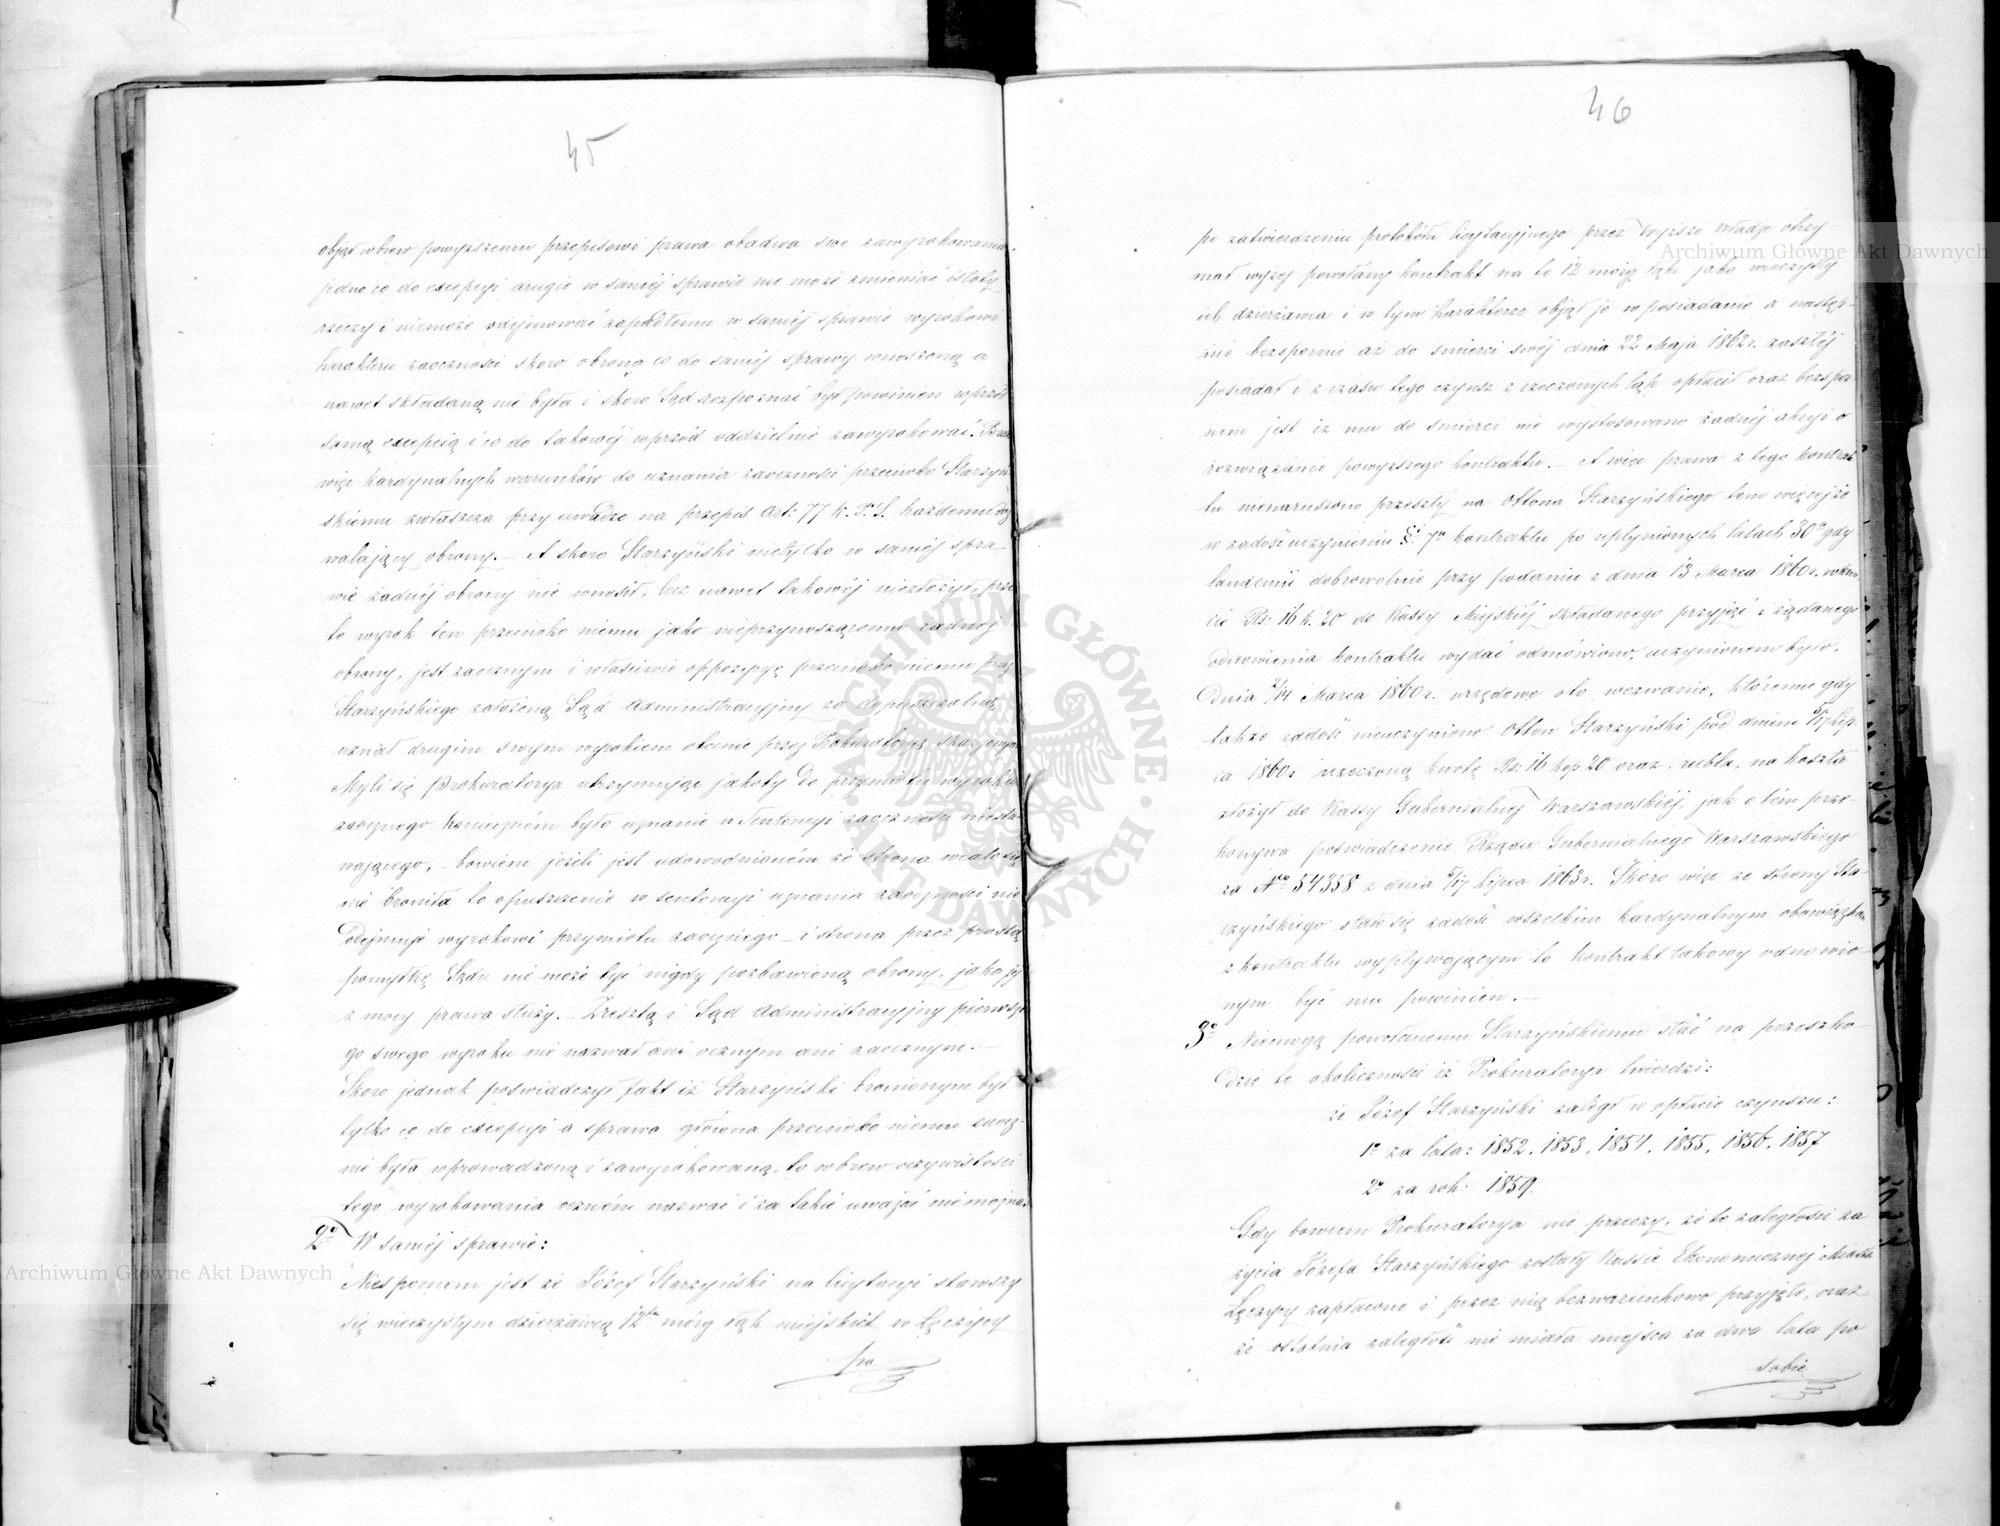 45
objął wbrew powyższemu przepisowi prawa obadwa swe zawyrokowania
jedno co do excepcyi drugie w samej sprawie nie może zmieniać istoty
rzeczy i niemoże odejmować zapadłemu w samej sprawie wyrokowi
harakteru zaoczności skoro obrona co do samej sprawy wnoszoną a
nawet składaną nie była i skoro Sąd rozpoznać był powinien wprzód
samą excepcią i co do takowej wprzód oddzielnie zawyrokować. Brak
więc kardynalnych warunków do uznania zaoczności przeciwko Starzyń
skiemu zwłaszcza przy uwadze na przepis Art: 77 K. P. S. każdemu
walający obrony. — A skoro Starzyński nietylko w samej spra
wie żadnej obrony nie wnosił, lecz nawet takowej niezłożył, prze
to wyrok ten przeciwko niemu jako nieprzynoszącemu żadnej
obrony, jest zaocznym i właściwie oppozycyę przeciwko niemu przez
Starzyńskiego założoną Sąd Administracyjny za dopuszczalną
uznał drugim swym wyrokiem obecnie przez Prokuratoryę skarżonym
Myli się Prokuratorya utrzymując jakoby do przymiotu wyroku
zaocznego koniecznem było uznanie w Sentencyi zaoczności niesta
wającego, — bowiem jeżeli jest udowodnionem że strona wcale się
nie broniła to opuszczenie w sentencyi uznania zaoczności nie
Odejmuje wyrokowi przymiotu zaocznego — i strona przez prostą
pomyłkę Sądu nie może być nigdy pozbawioną obrony, jaka jej
z mocy prawa służy. — Zresztą i Sąd Administracyjny pierwsze
go swego wyroku nie nazwał ani ocznym ani zaocznym. —
Skoro jednak poświadczył fakt iż Starzyński bronionym był
tylko co do excepcyi a sprawa główna przeciwko niemu zaocz-
nie była wprowadzoną i zawyrokowaną, to wbrew oczywistości
tego wyrokowania ocznem nazwać i za takie uważać nie można.
2o W samej sprawie:
Niespornem jest że Józef Starzyński na licytacyi stawszy
się wieczystym dzierżawcą 12tu mórg łąk miejskich w Łęczycy
po
46
po zatwierdzeniu protokółu licytacyjnego przez Wyższe Władze otrzy
mał wyżej powołany kontrakt na te 12 mórg łąk jako wieczysty
ich dzierżawca i w tym harakterze objął je w posiadanie a następ-
nie bezspornie aż do śmierci swej dnia 22 Maja 1862r. zaszłej
posiadał i z czasu tego czynsz z rzeczonych łąk opłacił oraz bezspor-
nem jest iż mu do śmierci nie wystosowano żadnej akcyi o
rozwiązanie powyższego kontraktu. — A więc prawa z tego kontrak
tu nienaruszone przeszły na Ottona Starzyńskiego tem więcej że
w zadość uczynieniu § 7o kontraktu po upłynionych latach 30u gdy
laudemii dobrowolnie przy podaniu z dnia 13 Marca 1860r. w kwo
cie Rs: 16 k. 20 do Kassy Miejskiej składanego przyjąć i żądanego
odnowienia kontraktu wydać odmówiono, uczynionem było,
Dnia 2/14 Marca 1860r. urzędowe oto wezwanie, któremu gdy
także zadość nieuczyniono Otton Starzyński pod dniem 5/17 Lip
ca 1860r rzeczoną kwotę Rs: 16 kop 20 oraz rubla, na koszta
złożył do Kassy Gubernialnej Warszawskiej, jak o tem prze-
konywa poświadczenie Rządu Gubernialnego Warszawskiego
za No 54358 z dnia 5/17 Lipca 1863r. Skoro więc ze strony Sta-
rzyńskiego stało się zadość wszelkim kardynalnym obowiązkom
z kontraktu wypływającym to kontrakt takowy odnowio-
nym być mu powinien. —
3o Niemogą powołanemu Starzyńskiemu stać na przeszko-
dzie te okoliczności iż Prokuratorya twierdzi:
że Józef Starzyński zaległ w opłacie czynszu:
1o za lata: 1852, 1853, 1854, 1855, 1856, 1857
2o za rok 1859.
Gdy bowiem Prokuratorya nie przeczy, że te zaległości za
życia Józefa Starzyńskiego zostały Kassie Ekonomicznej Miasta
Łęczycy zapłacone i przez nią bezwarunkowo przyjęte, oraz
że ostatnia zaległość nie miała miejsca za dwa lata po
sobie
Archiwum Główne Akt Dawnych
Archiwum Główne Akt Dawnych
ARCHIWUM GŁÓWNE
AKT DAWNYCH